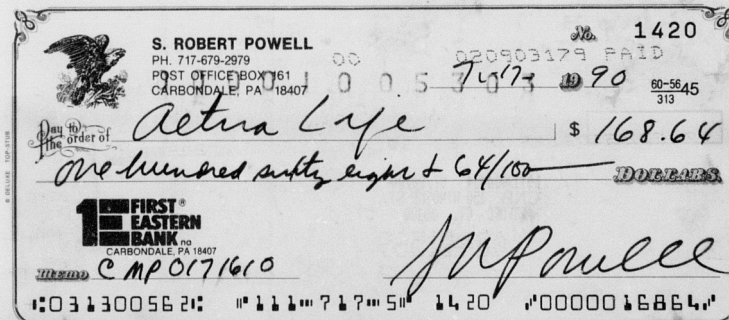 No. 1420
S. ROBERT POWELL
PH. 717-679-2979
00 020903179 PAID
POST OFFICE BOX 161
CARBONDALE, PA 18407
19 90
60-5645
313
Pay to the order of Aetna Life $ 168.64
one hundred sixty eight & 64/100 DOLLARS
FIRST®
EASTERN
BANK na
CARBONDALE, PA 18407
Memo CMP0171610
SRPowell
⑆031300562⑆ ⑈111⑉717⑉5⑈ 1420 ⑈0000016864⑈
© DELUXE TOP-STUB